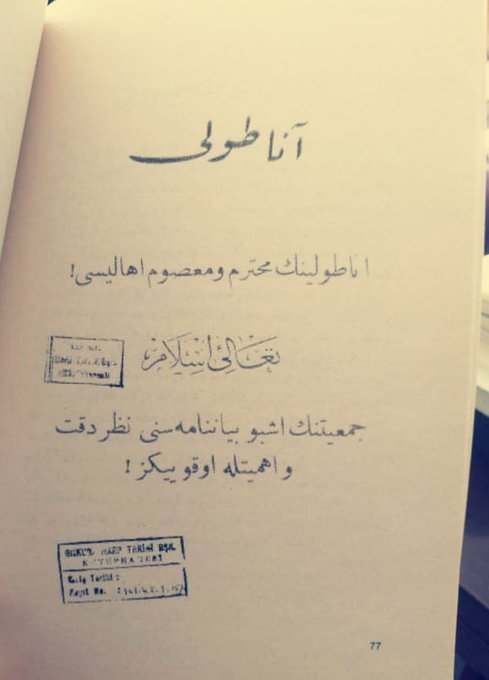 آناطولی
اناطولینك محترم و معصوم اهالیسی!
تعالئ اسلام
جمعیتنك اشبو بیاننامه‌سنی نظر دقت
و اهمیتله اوقوییكز!
GNKUR. HARP TARİHİ BŞK.
KÜTÜPHANESİ
Geliş Tarihi :
Kayıt No. :
77